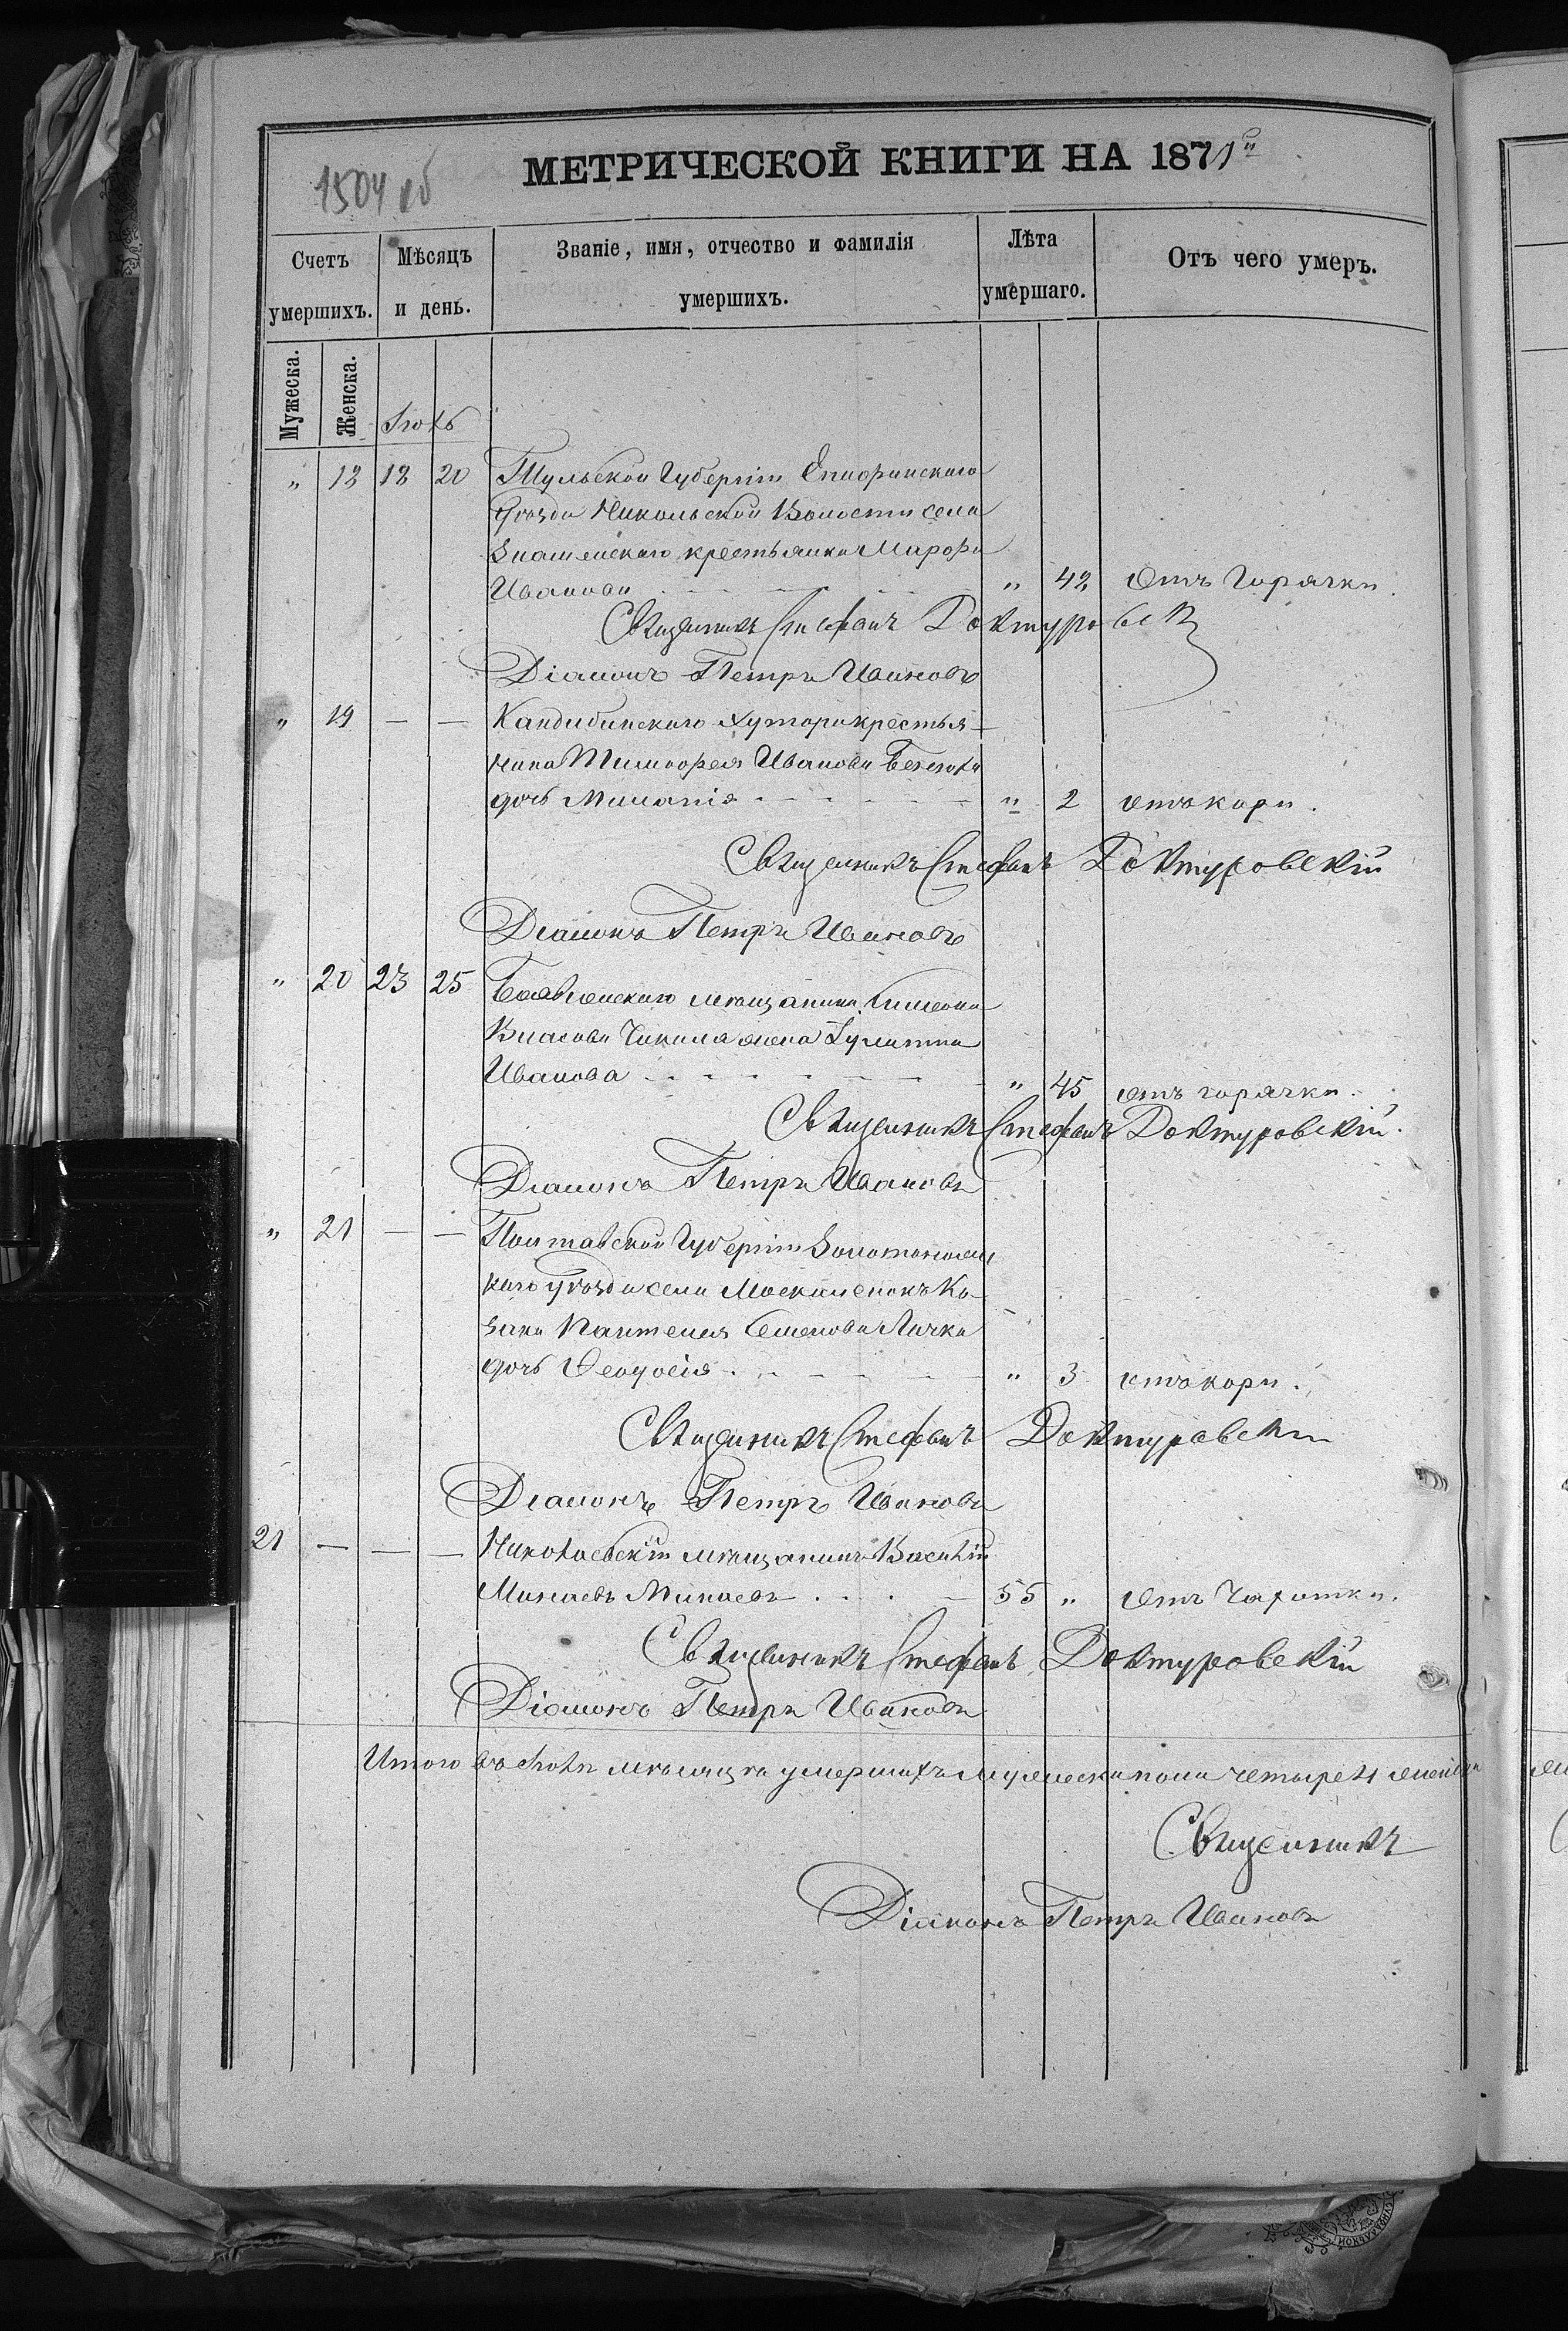 1504 об
МЕТРИЧЕСКОЙ КНИГИ НА 1871й
Счетъ умершихъ.
Мѣсяцъ и день.
Званіе, имя, отчество и фамилія умершихъ.
Лѣта умершаго.
Отъ чего умеръ.
Мужеска.
Женска.
Іюль
„ 18 18 20 Тульской Губерніи Епифанскаго
Уѣзда Никольской Волости села
крестьянка Марфа
Иванова „ 42 Отъ Горячки.
Священникъ Стефанъ Доктуровск
Діаконъ Петръ Ивановъ
„ 19 — — Кандибинскаго хутора крестья-
нина Тимофея Иванова
дочь Миланія „ 2 отъ кори.
Священникъ Стефанъ Доктуровскій
Діаконъ Петръ Ивановъ
„ 20 23 25 мѣщанина Симеона
Власова жена Іулитта
Иванова „ 45 отъ горячки.
Священникъ Стефанъ Доктуровскій.
Діаконъ Петръ Ивановъ
„ 21 — — Полтавской Губерніи Золотоношс
каго уѣзда села Москаленокъ Ко-
зака Пантелея Семенова Лячка
дочь Феодосія „ 3 отъ кори.
Священникъ Стефанъ Доктуровскій
Діаконъ Петръ Ивановъ
21 — — — Николаевскій мѣщанинъ Василій
Минаевъ Минаевъ 55 „ Отъ Чахотки.
Священникъ Стефанъ Доктуровскій
Діаконъ Петръ Ивановъ
Итого въ Іюлѣ мѣсяцѣ умершихъ мужеска пола четыре 4 женска
Священникъ
Діаконъ Петръ Ивановъ